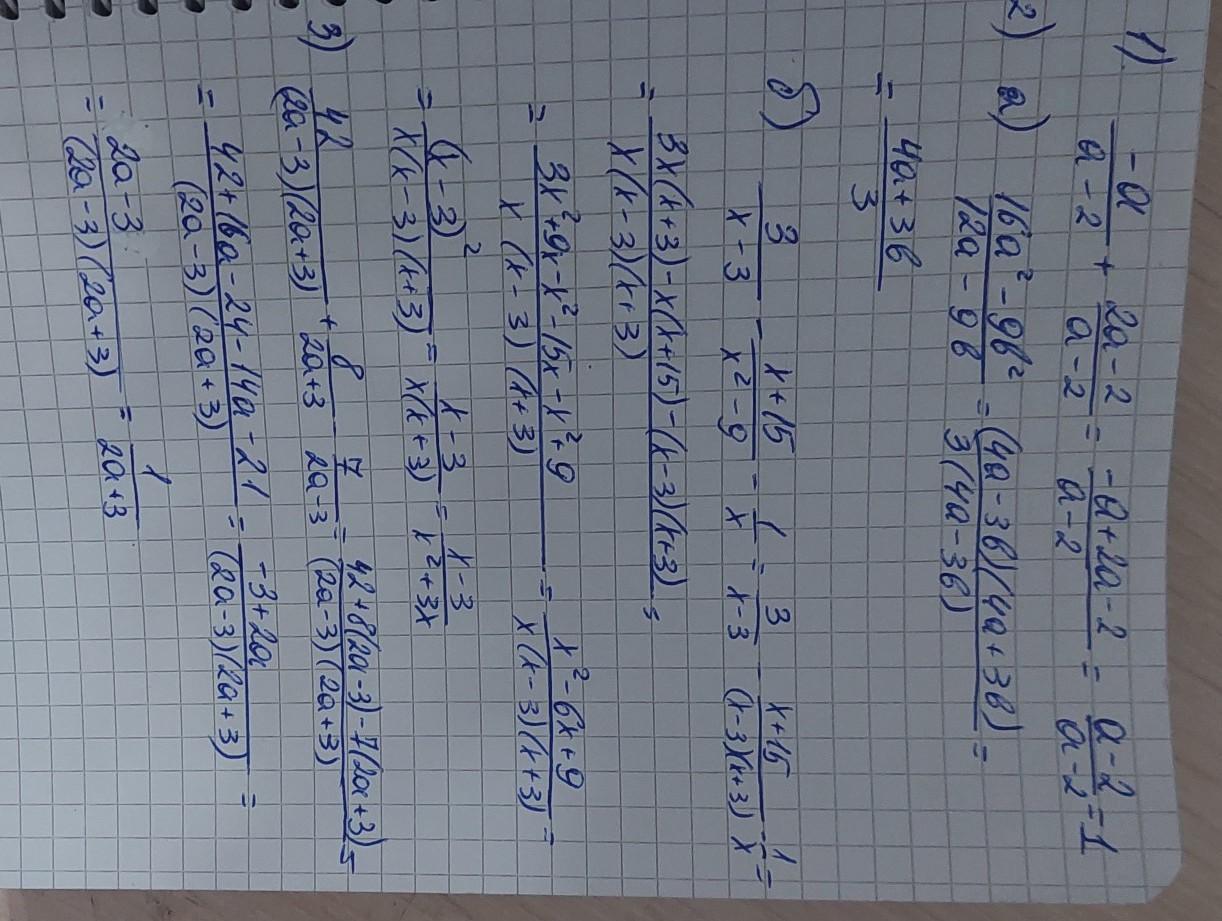 1) -a/(a-2) + (2a-2)/(a-2) = (-a+2a-2)/(a-2) = (a-2)/(a-2) = 1
2) а) (16a² - 9b²)/(12a - 9b) = (4a-3b)(4a+3b)/(3(4a-3b)) =
= (4a+3b)/3
б) 3/(x-3) - (x+15)/(x²-9) - 1/x = 3/(x-3) - (x+15)/((x-3)(x+3)) - 1/x =
= (3x(x+3) - x(x+15) - (x-3)(x+3))/(x(x-3)(x+3)) =
= (3x²+9x-x²-15x-x²+9)/(x(x-3)(x+3)) = (x²-6x+9)/(x(x-3)(x+3)) =
= (x-3)²/(x(x-3)(x+3)) = (x-3)/(x(x+3)) = (x-3)/(x²+3x)
3) 42/((2a-3)(2a+3)) + 8/(2a+3) - 7/(2a-3) = (42+8(2a-3)-7(2a+3))/((2a-3)(2a+3)) =
= (42+16a-24-14a-21)/((2a-3)(2a+3)) = (-3+2a)/((2a-3)(2a+3)) =
= (2a-3)/((2a-3)(2a+3)) = 1/(2a+3)